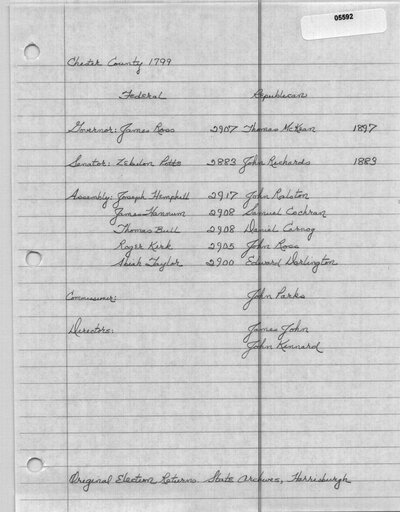 05592
Chester County 1799
Federal Republican
Governor: James Ross 2907 Thomas McKean 1897
Senator: Zebulon Potts 2883 John Richards 1883
Assembly: Joseph Hemphill 2917 John Ralston
James Hannum 2908 Samuel Cochran
Thomas Bull 2908 Daniel Carnog
Roger Kirk 2905 John Ross
Isiah Taylor 2900 Edward Darlington
Commissioner: John Parks
Directors: James John
John Kinnard
Original Election Returns. State Archives, Harrisburgh